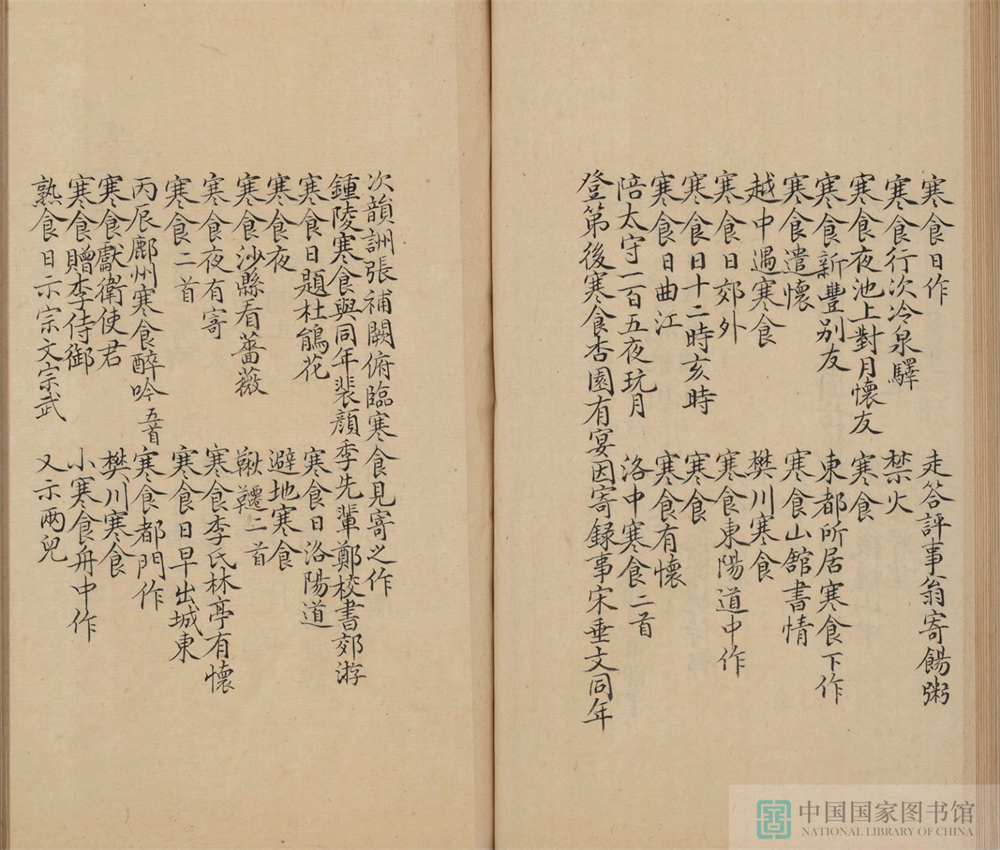 寒食日作 走答評事翁寄餳粥
寒食行次冷泉驛 禁火
寒食夜池上對月懷友 寒食
寒食新豐别友 東都所居寒食下作
寒食遣懷 寒食山館書情
越中遇寒食 樊川寒食
寒食日郊外 寒食東陽道中作
寒食日十二時亥時 寒食
寒食日曲江 寒食有懷
陪太守一百五夜玩月 洛中寒食二首
登第後寒食杏園有宴因寄録事宋垂文同年
次韻詶張補闕俯臨寒食見寄之作
鍾陵寒食與同年裴顔季先輩鄭校書郊游
寒食日題杜鵑花 寒食日洛陽道
寒食夜 避地寒食
寒食沙縣看薔薇 鞦韆二首
寒食夜有寄 寒食李氏林亭有懷
寒食二首 寒食日早出城東
丙辰鄜州寒食醉吟五首 寒食都門作
寒食獻衛使君 樊川寒食
寒食贈李侍御 小寒食舟中作
熟食日示宗文宗武 又示兩兒
中国国家图书馆
NATIONAL LIBRARY OF CHINA